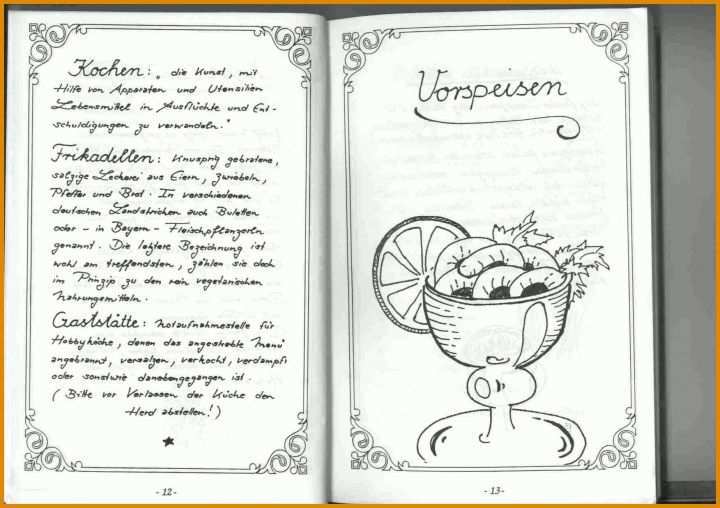 Kochen: "die Kunst, mit
Hilfe von Apparaten und Utensilien
Lebensmittel in Ausflüchte und Ent-
schuldigungen zu verwandeln."
Frikadellen: Knusprig gebratene,
salzige Leckerei aus Eiern, Zwiebeln,
Pfeffer und Brot. In verschiedenen
deutschen Landstrichen auch Buletten
oder - in Bayern - Fleischpflanzerln
genannt. Die letztere Bezeichnung ist
wohl am treffendsten, zählen sie doch
im Prinzip zu den rein vegetarischen
Nahrungsmitteln.
Gaststätte: Notaufnahmestelle für
Hobbyköche, denen das angestrebte Menü
angebrannt, versalzen, verkocht, verdampft
oder sonstwie danebengegangen ist.
(Bitte vor Verlassen der Küche den
Herd abstellen!)
- 12 -
Vorspeisen
- 13 -